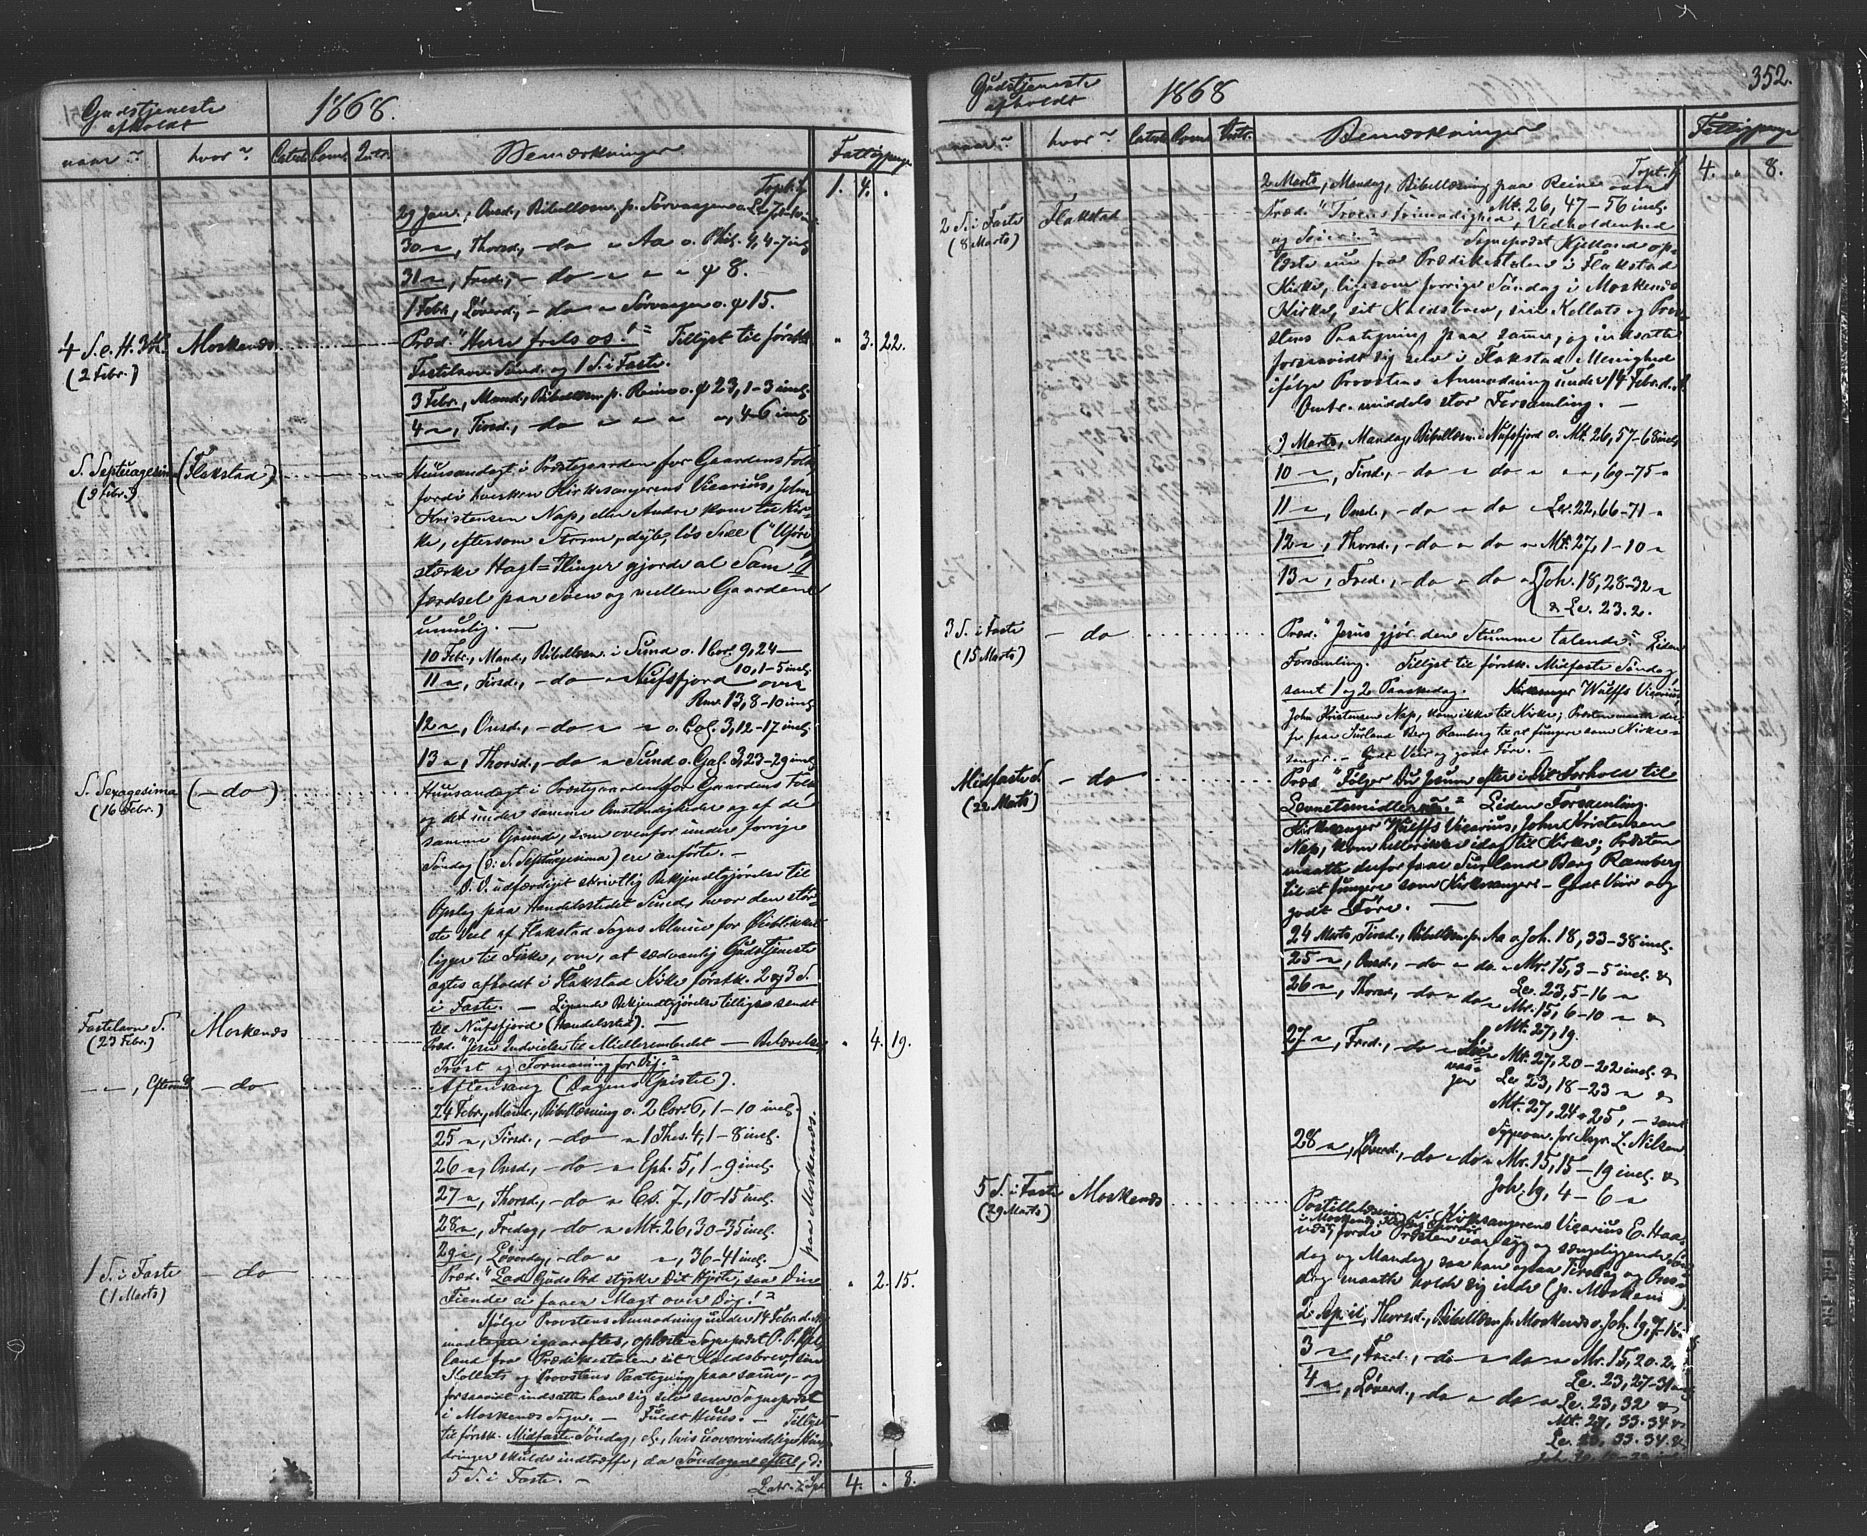 Gudstjeneste
afholdt
1868.
naar? hvor? Catech Com. Intr. Bemærkninger Fattigpenge
Tspt. 1. 4. .
29 Jan., Onsd., Bibellæsn. p. Sørvaagen o.
30 " , Thorsd., - do " Aa o. Phil. 4, 4-7 incl.
31 " , Fred., - do " " " ψ 8.
1 Febr., Løverd., - do " Sørvaagen o. ψ 15.
4 S. e. H. 3 K. Moskenæs Præd. "Herre frels os!" Tillyst til førstk. " 3. 22.
(2 Febr.) Fastelavns Sønd. og 1 S. i Faste.
3 Febr., Mand., Bibellæsn. p. Reine o. ψ 23, 1-3 incl.
4 " , Tirsd., - do " " " " , 4-6 incl.
S. Septuagesima (Flakstad) Huusandagt i Præstegaarden for Gaardens Folk
(9 Febr.) fordi hverken Kirkesangerens Vicarius, John
Kristensen Nap, eller Andre kom til Kir-
ke, eftersom Storm, dyb, løs Snee ("Uføre")
stærke Hagl-Flinger gjorde al Sam-
færdsel paa Søen og mellem Gaardene
umulig. -
10 Febr., Mand., Bibellæsn. i Sund o. 1 Cor. 9, 24 -
10, 1-5 incl.
11 " , Tirsd., - do " Nufsfjord over
Rom. 13, 8-10 incl.
12 " , Onsd., - do " " o. Col. 3, 12-17 incl.
13 " , Thorsd., - do " Sund o. Gal. 3, 23-29 incl.
S. Sexagesima (- do -) Huusandagt i Præstegaarden for Gaardens Folk
(16 Febr.) og det under samme Omstændigheder og af de
samme Grunde, som ovenfor under forrige
Søndag (d: S. Septuagesima) ere anførte. -
D. D. udfærdiget skrivtlig Bekjendtgjørelse til
Opslag paa Handelsstedet Sund, hvor den stør-
ste Deel af Flakstad Sogns Almue for Øieblikket
ligger til Fiske, om, at sædvanlig Gudstjeneste
agtes afholdt i Flakstad Kirke førstk. 2 og 3 S.
i Faste. - Lignende Bekjendtgjørelse tilligesendt
til Nufsfjord (Handelssted). -
Fastelavn S. Moskenæs Præd. "Jesu Indvielse til Midlerembedet - Belærelse, " 4. 19.
(23 Febr.) Trøst og Formaning for Dig."
- " , Efterm. - do Aftensang (Dagens Epistel).
24 Febr., Mand., Bibellæsning o. 2 Cor. 6, 1-10 incl.
25 " , Tirsd., - do " 1 Thes. 4, 1-8 incl.
26 " , Onsd., - do " Eph. 5, 1-9 incl.
27 " , Thorsd., - do " Es. 7, 10-15 incl.
28 " , Fredag, - do " Mt. 26, 30-35 incl.
29 " , Løverdag, - do " " , 36-41 incl.
paa Moskenæs.
1 S. i Faste - do Præd. "Lad Guds Ord styrke Dit Hjerte, saa Dine " 2. 15.
(1 Marts) Fiender ei faaer Magt over Dig!"
Ifølge Provstens Anmodning under 14 Febr. d. A.
modtagen igaaraftes, oplæste Sognepræst Kjel-
land fra Prædikestolen sit Kaldsbrev, sin
Kollats og Provstens Paategning paa samme, - og
forsaavidt indsatte han sig selv som Sognepræst
i Moskenæs Sogn. - Fuldt Huus. - Tillyst
til førstk. Midfaste Søndag, el., hvis uovervindelige Hin-
dringer skulde indtræffe, da Søndagen efter, d:
5 S. i Faste. -
Latr. 4. . 8.
Gudstjeneste
afholdt
1868
352.
naar? hvor? Catech Com. Intr. Bemærkninger Fattigpenge
Tspt. 4. . 8.
2 Marts, Mandag, Bibellæsning paa Reine over
Mt. 26, 47-56 incl.
2 S. i Faste Flakstad Præd. "Troens Frimodighed, Vedholdenhed
(8 Marts) og Seier." - Sognepræst Kjelland op-
læste nu fra Prædikestolen i Flakstad
Kirke, ligesom forrige Søndag i Moskenæs
Kirke, sit Kaldsbrev, sin Kollats og Prov-
stens Paategning paa samme, og indsatte
forsaavidt sig selv i Flakstad Menighed
ifølge Provstens Anmodning under 14 Febr. d. A.
Omtr. middels stor Forsamling. -
9 Marts, Mandag, Bibellæsn. i Nufsfjord o. Mt. 26, 57-68 incl.
10 " , Tirsd., - do " do " " , 69-75 "
11 " , Onsd., - do " do " Lc. 22, 66-71 "
12 " , Thorsd., - do " do " Mt. 27, 1-10 "
13 " , Fred., - do " do " Joh. 18, 28-32 "
& Lc. 23. 2.
3 S. i Faste - do Præd. "Jesus gjør den Stumme talende." Liden
(15 Marts) Forsamling. Tillyst til førstk. Midfaste Søndag,
samt 1 og 2 Paaskedag. Kirkesanger Wulffs Vicarius,
John Kristensen Nap, kom ikke til Kirke; Præsten maatte der-
for faae Suland Berg Ramberg til at fungere som Kirke-
sanger. - Godt Veir og godt Føre. -
Midfaste S. - do Præd. "Følger Du Jesum efter i Dit Forhold til
(22 Marts) Levnetsmidlerne?" Liden Forsamling.
Kirkesanger Wulffs Vicarius, John Kristensen
Nap, kom heller ikke idag til Kirke; Præsten
maatte derfor faae Suland Berg Ramberg
til at fungere som Kirkesanger. - Godt Veir og
godt Føre. -
24 Marts, Tirsd., Bibellæsn. p. Aa o. Joh. 18, 33-38 incl.
25 " , Onsd., - do " do " Mr. 15, 3-5 incl. &
Lc. 23, 5-16 "
26 " , Thorsd., - do " do " Mr. 15, 6-10 " &
Mt. 27, 19.
27 " , Fred., - do " Sør- Mt. 27, 20-22 incl. &
vaa- Lc. 23, 18-23 " &
gen Mt. 27, 24 & 25, - samt
Sygeom. for L. Nilsen
28 " , Løverd., - do " do " Mr. 15, 15-19 incl. &
Joh. 19, 4-6 "
5 S. i Faste Moskenæs Postillelæsning v. Kirkesangerens Vicarius E.
(29 Marts) i Moskenæs
fordi Præsten var syg og sengeliggende Søn-
dag og Mandag, saa han ogsaa Tirsdag og Ons-
dag maatte holde sig inde (p. Moskenæs).
2 April, Thorsd., Bibellæsn. p. Moskenæs o. Joh. 19, 7-16
3 " , Fred., - do " do " Mr. 15, 20.
Lc. 23, 27-31
4 " , Løverd., - do " do " Lc. 23, 32 &
Mt. 27, 33. 34 &
Lc. 23, 33. 34. &
Joh. 19,